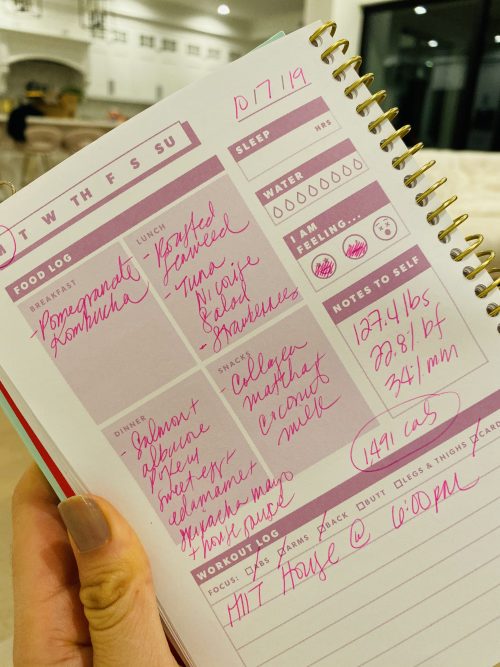 10 17 19
M T W TH F S SU
SLEEP
HRS
WATER
I AM
FEELING...
NOTES TO SELF
127.4 lbs
22.8% bf
34% mm
FOOD LOG
BREAKFAST
- Pomegranate
Kombucha
LUNCH
- Roasted
seaweed
- Tuna
Nicoise
Salad
- Strawberries
DINNER
- Salmon +
albacore
Poke w/
sweet egg +
edamame +
sriracha mayo
+ house sauce
SNACKS
- Collagen
matcha +
coconut
milk
1491 cals
WORKOUT LOG
FOCUS: ABS ARMS BACK BUTT LEGS & THIGHS CARD
HIIT House @ 6:00PM